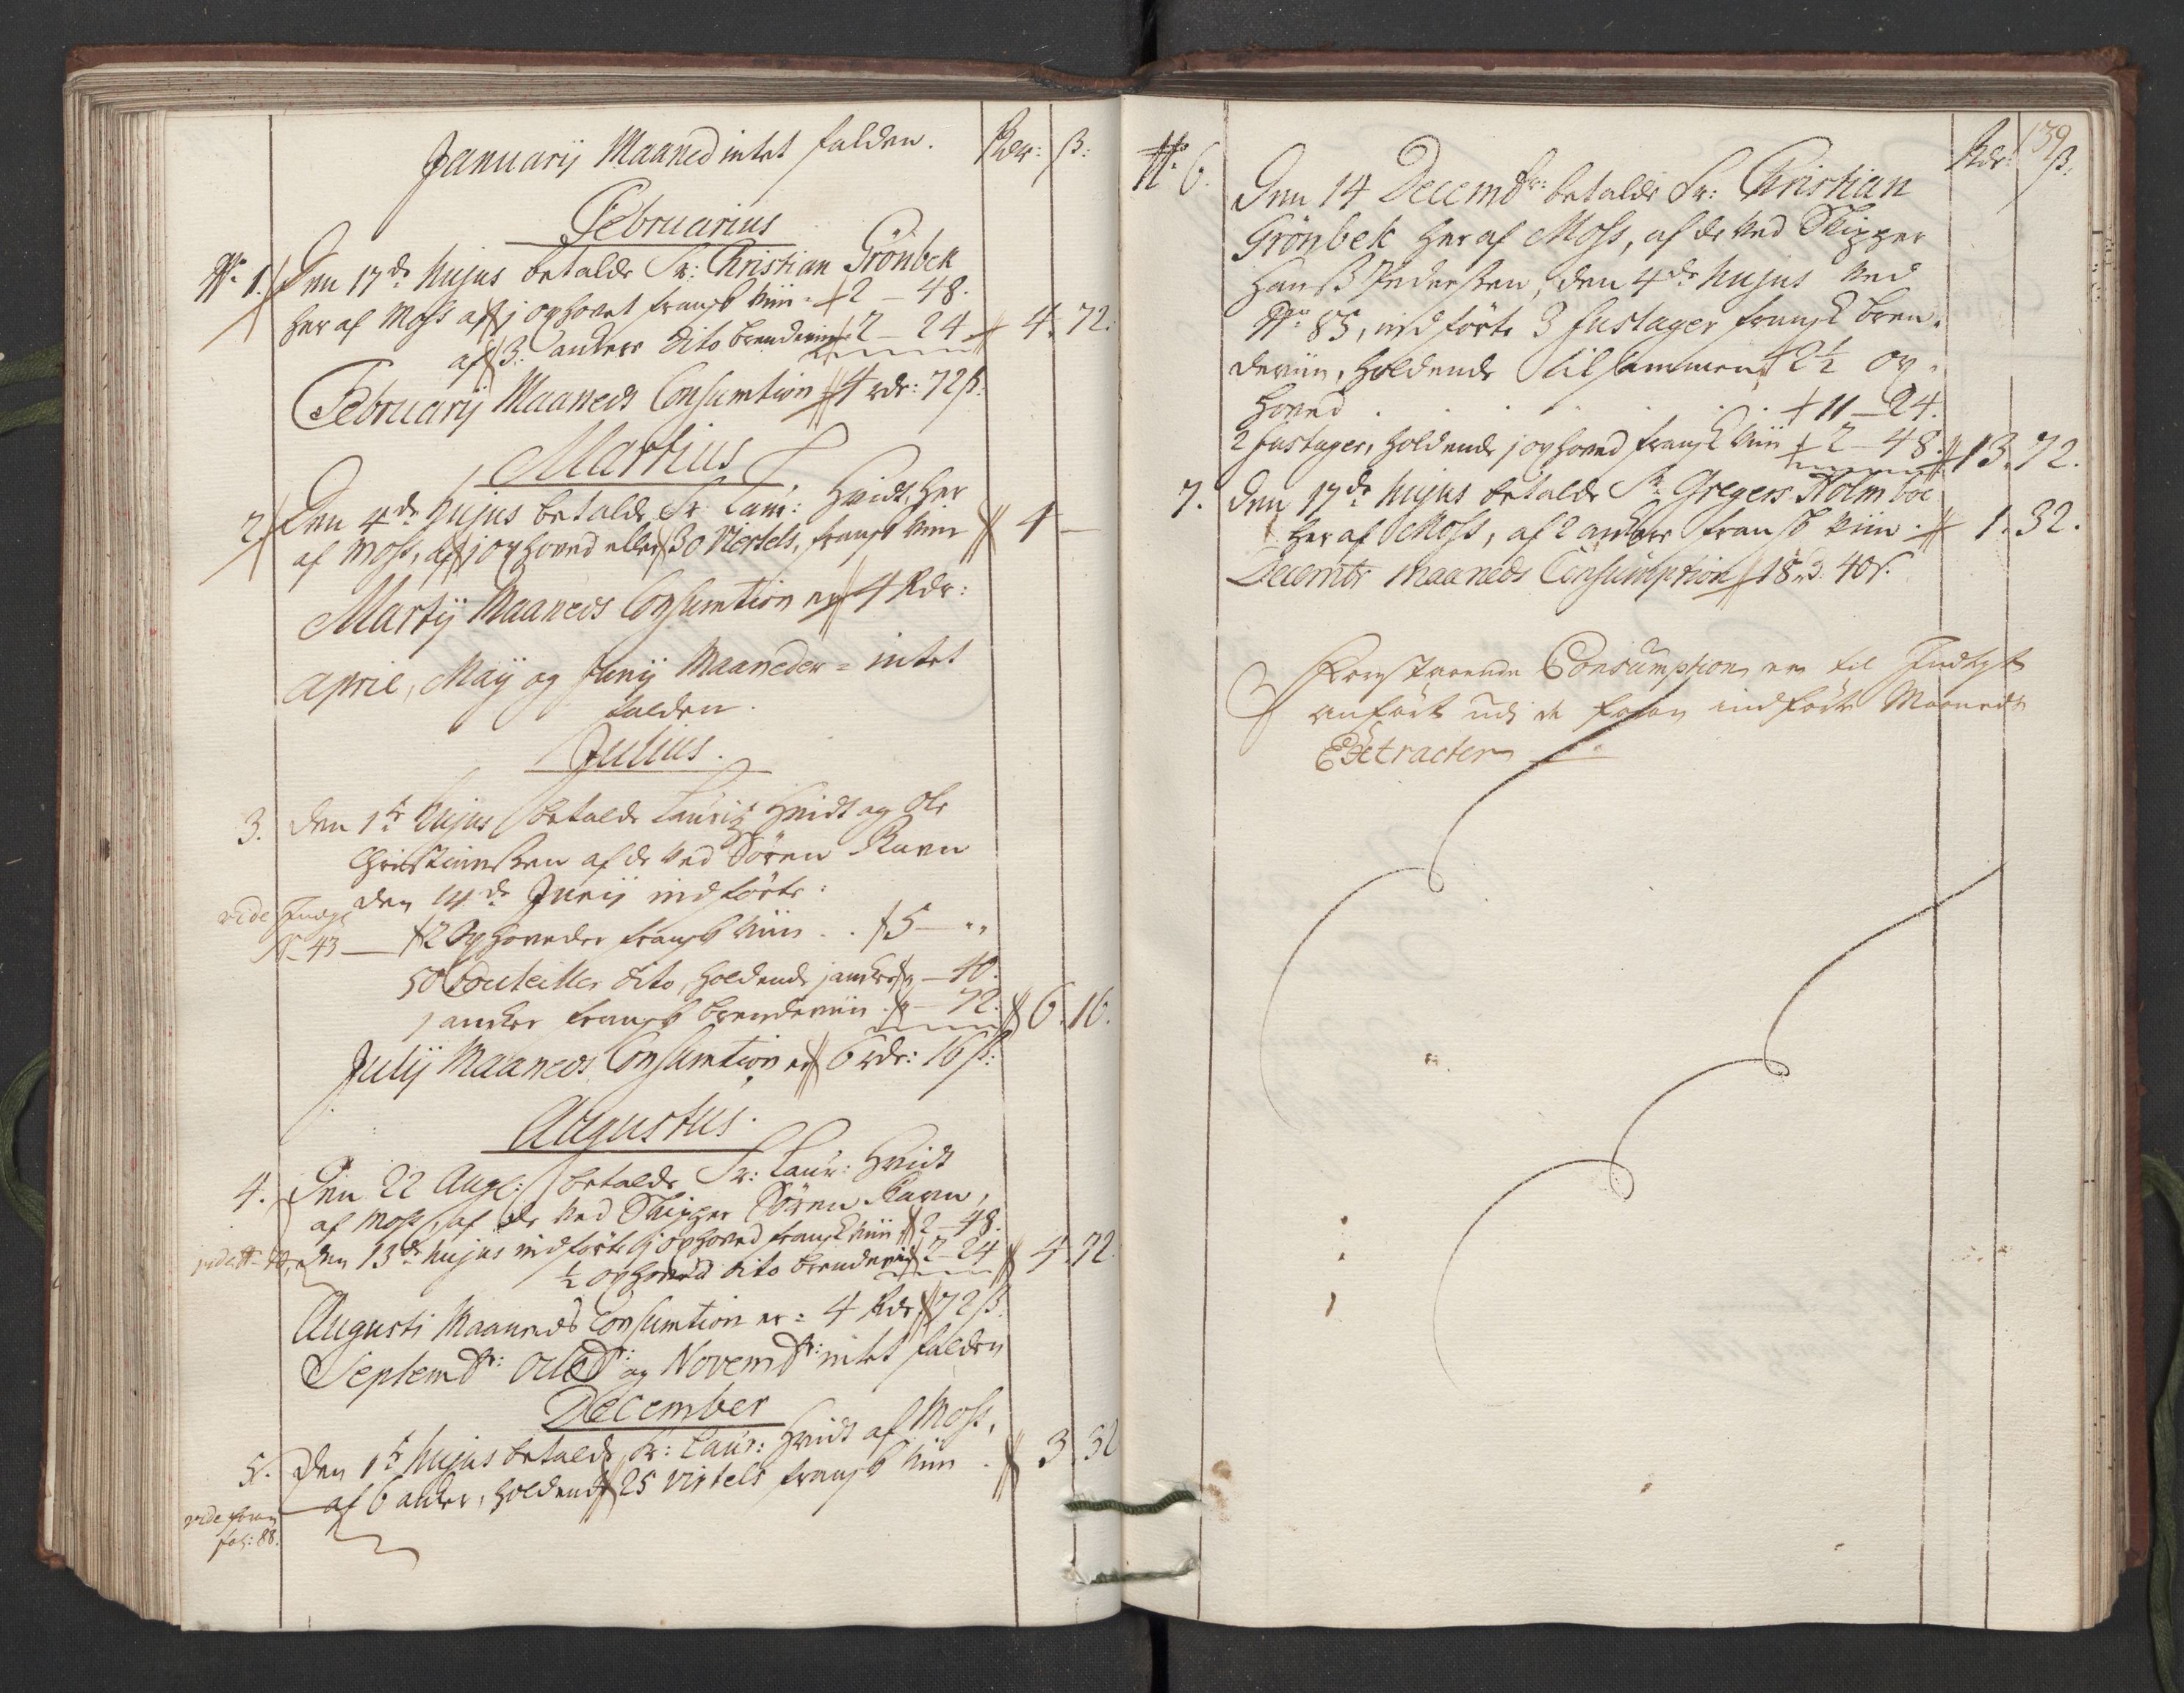 Januarij Maaned intet falden. Rdr: ß:
Februarius
No 1. Den 17de hujus betalde Sr: Christian Grönbek
her af Moss af 1 oxhovet fransk Viin - 2 - 48.
af 3. ankers dito brendeviin 2 - 24 4. 72.
Februarij Maaneds Consumtion 4 rdr: 72 ß.
Martius
2. Den 4de hujus betalde Sr: Laur: Hvidt, her
af Moss, af 1 oxhoved eller 30 Viertels, fransk Viin 4 -
Martij Maaneds Consumtion er 4 Rdr:
April, Maij og Junij Maaneder = intet
falden.
Julius.
3. Den 1te hujus betalde Lauritz Hvidt og Ole
Christiansen af de Ved Sören Ravn
den 14de Junij indförte:
vide Indg
No 43 — 2 Oxhoveder fransk Viin . . 5 — „
50 Bouteiller dito, holdende 1 anker „ — 40.
1 anker fransk brendeviin . „ — 72. 6. 16.
Julij Maaneds Consumtion er 6 rdr: 16 ß:
Augustus.
4. Den 22 Aug: betalde Sr: Laur: Hvidt
af Moss, af de Ved Skipper Sören Ravn,
den 13de hujus indförte 1 oxhoved fransk Viin 2 - 48.
½ oxhoved dito brendeviin 2 - 24 4. 72
Augusti Maaneds Consumtion er = 4 Rdr 72 ß.
Septembr: Octobr: og Novembr: intet falden
December
5. Den 1te hujus betalde Sr: Laur: Hvidt af Moss,
af 6 anker, holdende 25 Viertels fransk Viin . 3. 32
vide foran
fol: 88.
139
No 6. Rdr: ß.
Den 14 Decembr: betalde Sr: Christian
Grönbek her af Moss, af de Ved Skipper
Hans Pedersen, den 4de hujus Ved
No 85, indförte 3 fustager fransk bren-
deviin, holdende tilsammen 2½ ox-
hoved . . . . . 11 - 24.
2 fustager, holdende 1 oxhoved fransk Viin 2 - 48. 13. 72.
7. Den 17de hujus betalde Sr: Gregers Holmboe
her af Moss, af 2 ankers fransk Viin . 1. 32.
Decembr Maaneds Consumption 18 rd: 40 ß.
Forestaaende Consumption er til Indtegt
anfört udj de foran indförte Maaneds
Extracter